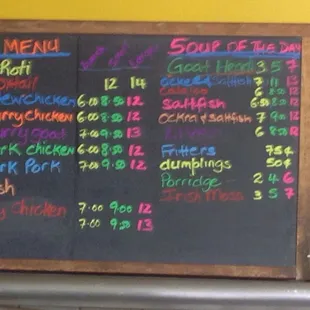 MENU
Roti
Oxtail 12 14
Stew chicken 6.00 8.50 12
Curry chicken 6.00 8.50 12
Curry goat 7.00 9.50 13
Jerk chicken 6.00 8.50 12
Jerk Pork 7.00 9.50 12
7.00 9.00 12
7.00 9.50 13
SOUP OF THE DAY
Goat Head 3 5 7
Saltfish 7 11 13
6 8.50 12
Saltfish 6.50 8.50 12
Ockra & saltfish 7 9.00 12
6 8.50 12
Fritters 75¢
dumplings 50¢
Porridge 2 4 6
Irish Moss 3 5 7